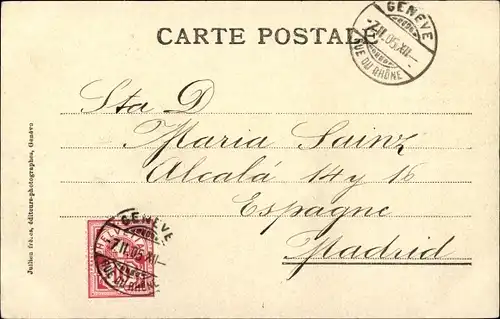 CARTE POSTALE
GENEVE
-7.II.05.XII-
RUE DU RHÔNE
Sta D
Maria Sainz
Alcalá 14 y 16
Espagne
Madrid
GENEVE
-7.II.05.XII-
RUE DU RHÔNE
Jullien frères, éditeurs-photographes, Genève